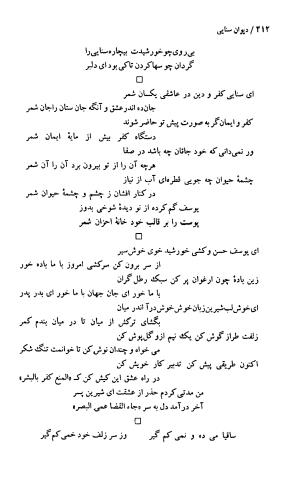 ۴۱۲ / دیوان سنایی
بی‌روی‌چو خورشیدت بیچاره سنایی را
گردان چو سها کردن تا کی بود ای دلبر
□
ای سنایی کفر و دین در عاشقی یکسان شمر
جان ده اندر عشق و آنگه جان ستان را جان شمر
کفر و ایمان گر به صورت پیش تو حاضر شوند
دستگاه کفر بیش از مایهٔ ایمان شمر
ور نمی‌دانی که خود جانان چه باشد در صفا
هرچه آن را از تو بیرون برد آن را آن شمر
چشمهٔ حیوان چه جویی قطره‌ای آب از نیاز
در کنار افشان ز چشم و چشمهٔ حیوان شمر
یوسف گم کرده از نو دیدهٔ شوخی بدوز
پوست را بر قالب خود خانهٔ احزان شمر
□
ای یوسف حسن و کشی خورشید خوی خوش‌سیر
از سر برون کن سرکشی امروز با ما باده خور
زین بادهٔ چون ارغوان پر کن سبک رطل گران
با ما خور ای جان جهان با ما خور ای بدر پدر
ای خوش‌لب شیرین‌زبان خوش‌خوش درآ اندر میان
بگشای ترکش از میان تا در میان بندم کمر
زلفت طراز گوش کن یک نیم ازو گلپوش کن
می خواه و چندان نوش کن تا خوانمت تنگ شکر
اکنون طریقی پیش کن تدبیر کار خویش کن
در راه عشق این کیش کن کـ «المنع کفر بالبشر»
من مدتی کردم حذر از عشقت ای شیرین پسر
آخر درآمد دل به سر «جاء القضا عمی البصر»
ساقیا می ده و نمی کم گیر
وز سر زلف خود خمی کم گیر